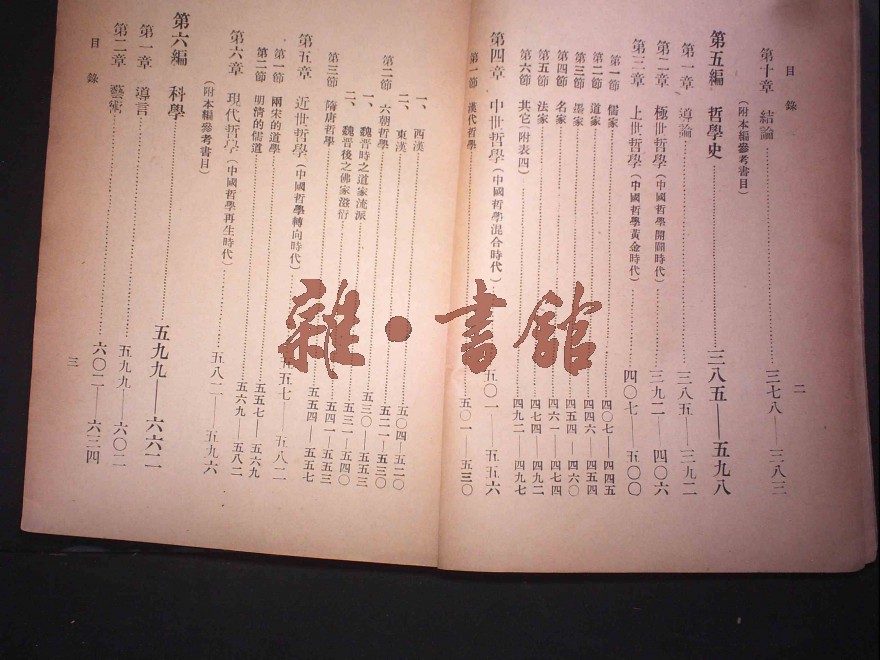 目錄
二
第十章 結論……三七八——三八三
(附本編參考書目)
第五編 哲學史……三八五——五九八
第一章 導論……三八五——三九二
第二章 極世哲學(中國哲學開闢時代)……三九二——四〇六
第三章 上世哲學(中國哲學黃金時代)……四〇七——五〇〇
第一節 儒家……四〇七——四四五
第二節 道家……四四六——四五四
第三節 墨家……四五四——四六〇
第四節 名家……四六一——四七四
第五節 法家……四七四——四九二
第六節 其它(附表四)……四九二——四九七
第四章 中世哲學(中國哲學混合時代)……五〇一——五五六
第一節 漢代哲學……五〇一——五三〇
一、西漢……五〇四——五二〇
二、東漢……五二一——五三〇
第二節 六朝哲學……五三〇——五五三
一、魏晉時之道家流派……五三一——五四〇
二、魏晉後之佛家滋衍……五四一——五五三
第三節 隋唐哲學……五五四——五五七
第五章 近世哲學(中國哲學轉向時代)……五五七——五八二
第一節 兩宋的道學……五五七——五六九
第二節 明清的儒道……五六九——五八二
第六章 現代哲學(中國哲學再生時代)……五八二——五九六
(附本編參考書目)
第六編 科學……五九九——六六二
第一章 導言……五九九——六〇二
第二章 藝術……六〇二——六三四
目錄
三
雜·書館